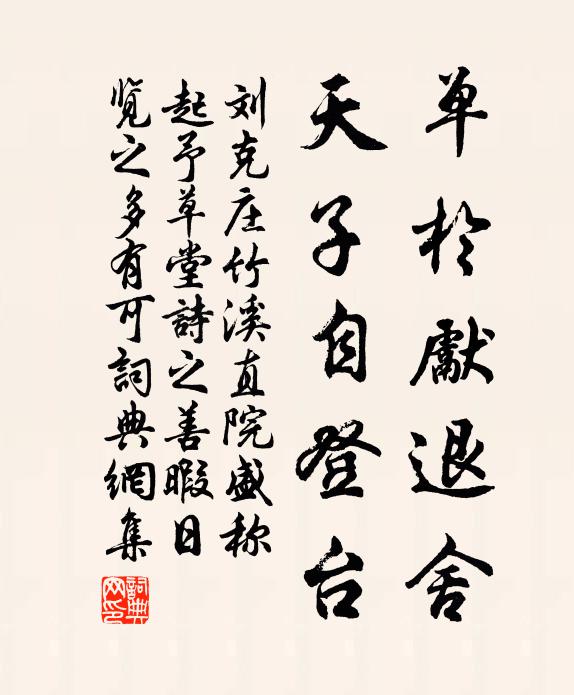 单於獻退舍
天子自登台
刘克庄竹溪直院盛称
起予草堂詩之善暇日
覽之多有可詞典網集
詞典
网印